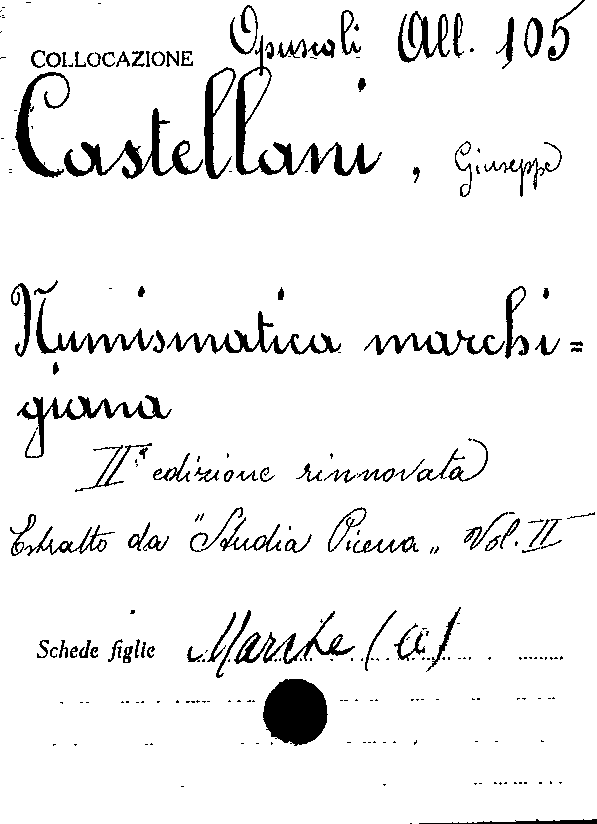 COLLOCAZIONE Opuscoli All. 105
Castellani, Giuseppe
Numismatica marchi=
giana
IIª edizione rinnovata
Estratto da "Studia Picena" Vol. II
Schede figlie Marche (a)